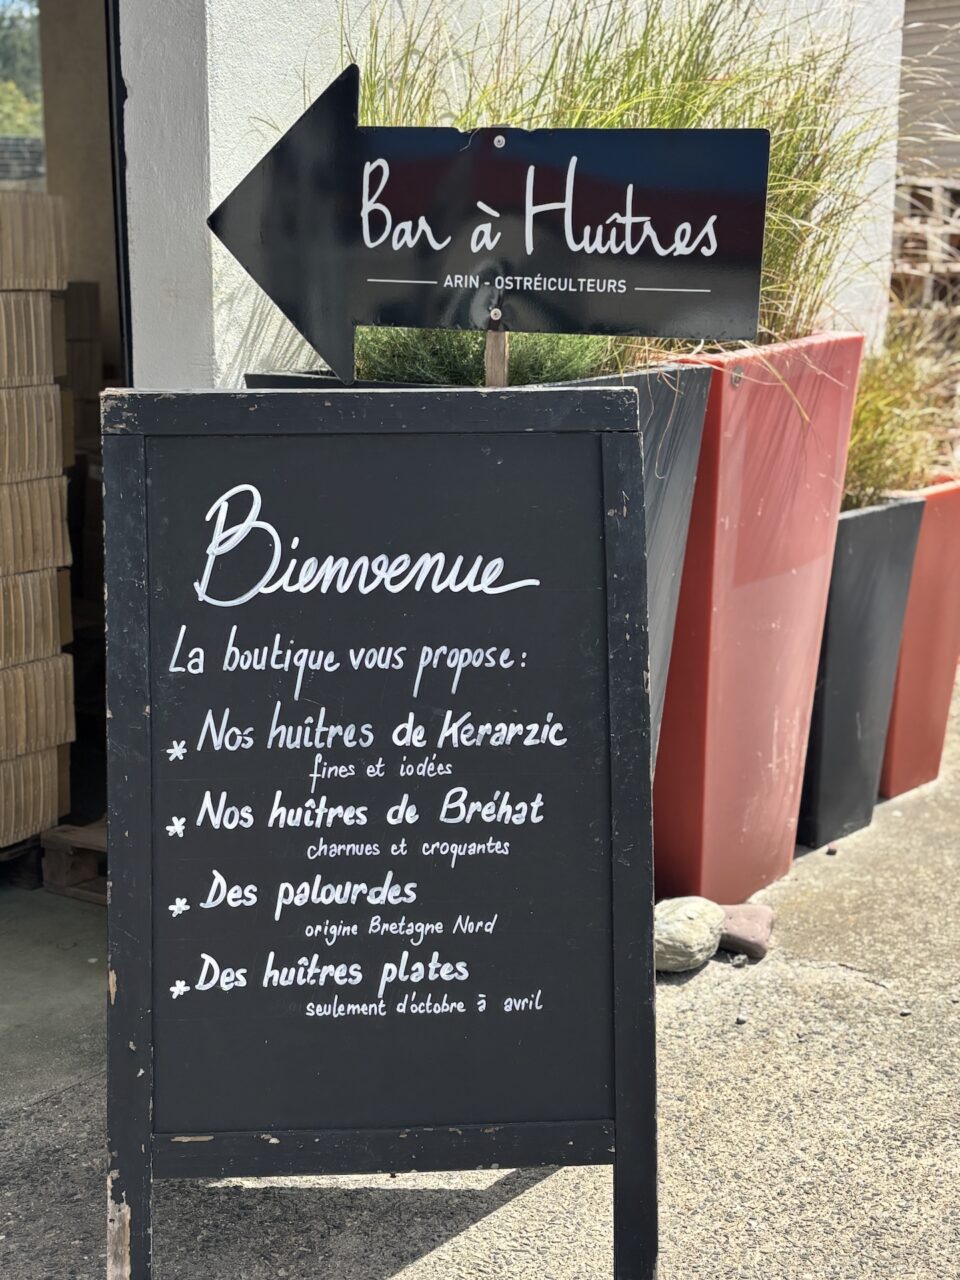 Bar à Huîtres
ARIN - OSTRÉICULTEURS
Bienvenue
La boutique vous propose :
* Nos huîtres de Kerarzic
fines et iodées
* Nos huîtres de Bréhat
charnues et croquantes
* Des palourdes
origine Bretagne Nord
* Des huîtres plates
seulement d'octobre à avril